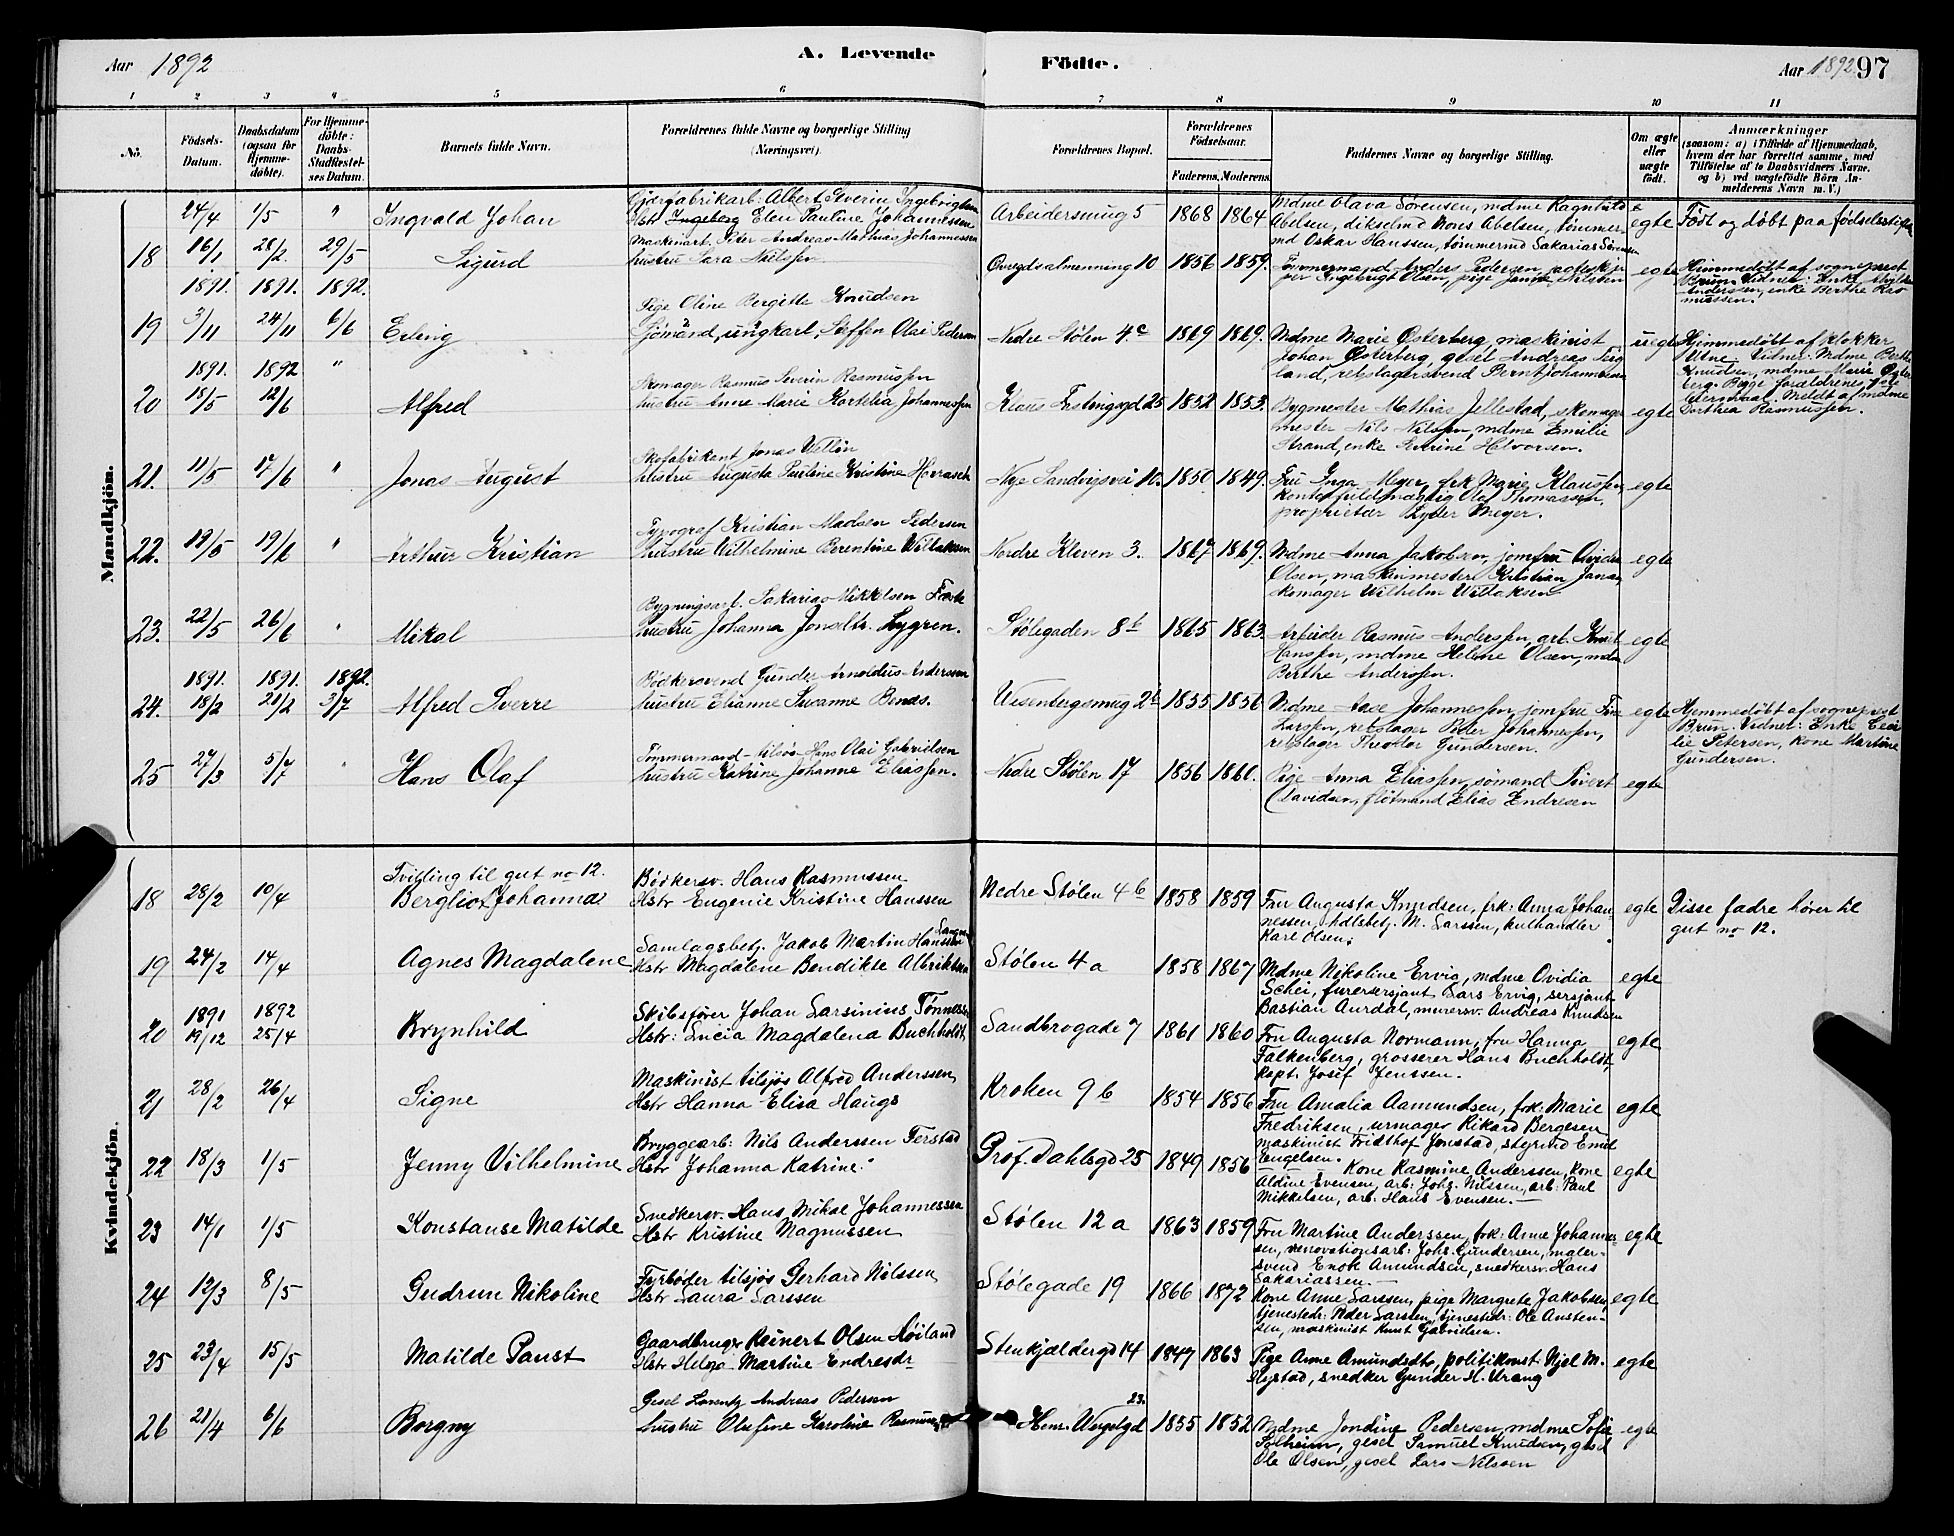 Aar 1892
A. Levende
Födte.
Aar 1892
97
1 2 3 4 5 6 7 8 9 10 11
No.
Födsels-Datum.
Daabsdatum (ogsaa for Hjemme-döbte).
For Hjemme-döbte: Daabs-Stadfæstel-ses Datum.
Barnets fulde Navn.
Forældrenes fulde Navne og borgerlige Stilling (Næringsvei).
Forældrenes Bopæl.
Forældrenes Födselsaar.
Faderens. Moderens.
Faddernes Navne og borgerlige Stilling.
Om ægte eller uægte födt.
Anmærkninger
(saasom: a) i Tilfælde af Hjemmedaab,
hvem der har forrettet samme, med
Tilföielse af to Daabsvidners Navne,
og b) ved uægtefödte Börn An-
melderens Navn m. V.)
Mandkjön.
24/4 1/5 "
Ingvald Johan
Albert Severin Ingebrigtsen
Hstr Ingeborg Elen Pauline Johannessen
Arbeidersmug 5 1868 1864
Mdme Olava Sörensen, mdme Ragnhild
Abelsen, dikselmd Mons Abelsen, tømmer-
md Oskar Hanssen, tømmermd Sakarias Sörensen
egte
Født og døbt paa fødselsstiftelsen
18 16/1 28/2 29/5
Sigurd
Maskinarb. Peter Andreas Mathias Johannessen
hustru Sara Nilssen
Øvregdsalmenning 10 1856 1859.
Tømmermand Anders Pedersen,
Ingebrigt Olsen, pige Nilssen
egte
Hjemmedøbt af sogneprest
Brun. Vidner: Enke
Anderssen, enke Berthe Ras-
mussen.
1891. 1891. 1892.
19 3/11 24/11 6/6
Erling
Pige Oline Bergitte Knudsen
Sjømand, ungkarl, Steffen Olai Pedersen
Nedre Stølen 4c 1869 1869.
Mdme Marie Østerberg, maskinist
Johan Østerberg, gesel Andreas
land, rebslagersvend Bernt Johannessen
uegte
Hjemmedøbt af klokker
Utne. Vidner: Mdme Berthe
Knudsen, mdme Marie Øster-
berg. Begge forældrenes 1ste
leiermaal. Meldt af mdme
Dorthea Rasmussen.
1891. 1892 "
20 18/5 12/6
Alfred
Skomager Rasmus Severin Rasmussen
hustru Anne Marie Kornelia Johannessen
Klaus 25 1852 1853.
Bygmester Mathias Jellestad, skomager
mester Nils Nilssen, mdme Emilie
Strand, enke Severine Halvorsen.
egte
21. 11/5 17/6 "
Jonas August
Skofabrikant Jonas
hustru Augusta Pauline Kristine
Nye Sandvigsvei 10. 1850 1849.
Fru Inga Meyer, frk Marie Klaussen,
kontorfuldmægtig Olaf Thomassen,
proprietær Ryder Meyer.
egte
22. 19/5 19/6 "
Arthur Kristian
Typograf Kristian Madsen Pedersen
hustru Wilhelmine Berentine Willaksen
Nordre Kleven 3. 1867 1869.
Mdme Anna Jakobsen, jomfru Ovidia
Olsen, maskinmester Kristian
skomager Wilhelm Willaksen
egte
23. 22/5 26/6 "
Mikal
Bygningsarb. Sakarias Mikkelsen
hustru Johanna Jonsdtr. Lygren.
Stølegaden 8b 1865 1863.
Arbeider Rasmus Anderssen, arb. Knut
Hanssen, mdme Helene Olsen, mdm
Berthe Anderssen.
egte
1891. 1891. 1892.
24. 18/2 21/2 3/7
Alfred Sverre
Bødkersvend Gunder Arnoldus Anderssen
hustru Elianne Susanne
Wesenbergsmug 2b 1855 1856.
Mdme Aase Johannessen, jomfru
Larssen, rebslager Peder Johannessen,
rebslager Theodor Gundersen.
egte
Hjemmedøbt af sogneprest
Brun. Vidner: Enke Ceci-
lie Petersen, kone Martine
Gundersen.
25 27/3 5/7 "
Hans Olaf
Tømmermand tilsjøs Hans Olai Gabrielsen
hustru Katrine Johanne Eliassen.
Nedre Stølen 17 1856 1860.
Pige Anna Eliassen, sømand Sivert
Davidsen, fløtmand Elias Endresen
egte
Kvindekjön.
18 28/2 10/4
Tvilling til gut no 12.
Bergliot Johanna
Bødkersv. Hans Rasmussen
Hstr Eugenie Kristine Hanssen
Nedre Stølen 4b 1858 1859
Fru Augusta Knudsen, frk: Anna Johan-
nessen, Adlsbetj. M. Larssen, kulhandler
Karl Olsen.
egte
Disse fadre hører til
gut no 12.
19 24/2 14/4
Agnes Magdalene
Samlagsbetj. Jakob Martin Hanssen
Hstr Magdalene Bendikte Albriktsen
Stølen 4a 1858 1867
Mdme Nikoline Ervig, mdme Ovidia
Schei, furersersjant Lars Ervig, sersjant
Bastian Aurdal, murersv. Andreas Knudsen
egte
1891 1892
20 19/12 25/4
Brynhild
Skibsfører Johan Larsinius Tønnessen
Hstr: Lucia Magdalena Buchholdt
Sandbrogade 7 1861 1860
Fru Augusta Normann, fru Hanna
Falkenberg, grosserer Hans Buchholdt,
kapt. Josef Jenssen.
egte
21 28/2 26/4
Signe
Maskinist tilsjøs Alfred Anderssen
Hstr Hanna Elisa Haugs
Kroken 9b 1854 1856
Fru Amalia Aamundsen, frk: Marie
Fredriksen, urmager Rikard Bergesen
maskinist Fridthof Jonstad, styrmd Emil
Engelsen.
egte
22 18/3 1/5
Jenny Vilhelmine
Bryggearb: Nils Anderssen Ferstad
Hstr Johanna Katrine.
Prof. Dahlsgd 25 1849 1856
Kone Rasmine Anderssen, kone
Aldine Evensen, arb: Johs. Nilssen, arb: Paul
Mikkelsen, arb: Hans Evensen.
egte
23 14/1 1/5
Konstanse Matilde
Snedkersv. Hans Mikal Johannessen
Hstr Kristine Magnussen
Stølen 12a 1863 1859
Fru Martine Anderssen, frk: Anne Johannes-
sen, renovationsarb: Johs. Gundersen, maler-
svend Enok Amundsen, snedkersv. Hans
Sakariassen.
egte
24 12/3 8/5
Gudrun Nikoline
Fyrbøder tilsjøs Gerhard Nilssen
Hstr Laura Larssen
Stølegade 19 1866 1872
Kone Anne Larssen, pige Margrete Jakobsen,
tjenestedr: Peder Larssen, tjenestedr: Ole Austen-
sen, maskinist Knut Gabrielsen.
egte
25 23/4 15/5
Matilde Paust
Gaardbruger Reinert Olsen Høiland
Hstr Helga Martine Endresdr
Stenkjældergd 14 1847 1863
Pige Anne Amundsdtr, politikonst. Kjel M.
Hystad, snedker Gunder H. Vrang
egte
26 21/4 6/6
Borgny
Gesel Lorentz Andreas Pedersen
hustru Olufine Karoline
Henr. Wergelgd 23. 1855 1852
Mdme Jondine Pedersen, mdme Sofie
Solheim, gesel Samuel Knudsen, gesel
Ole Olsen, gesel Lars Nilssen
egte